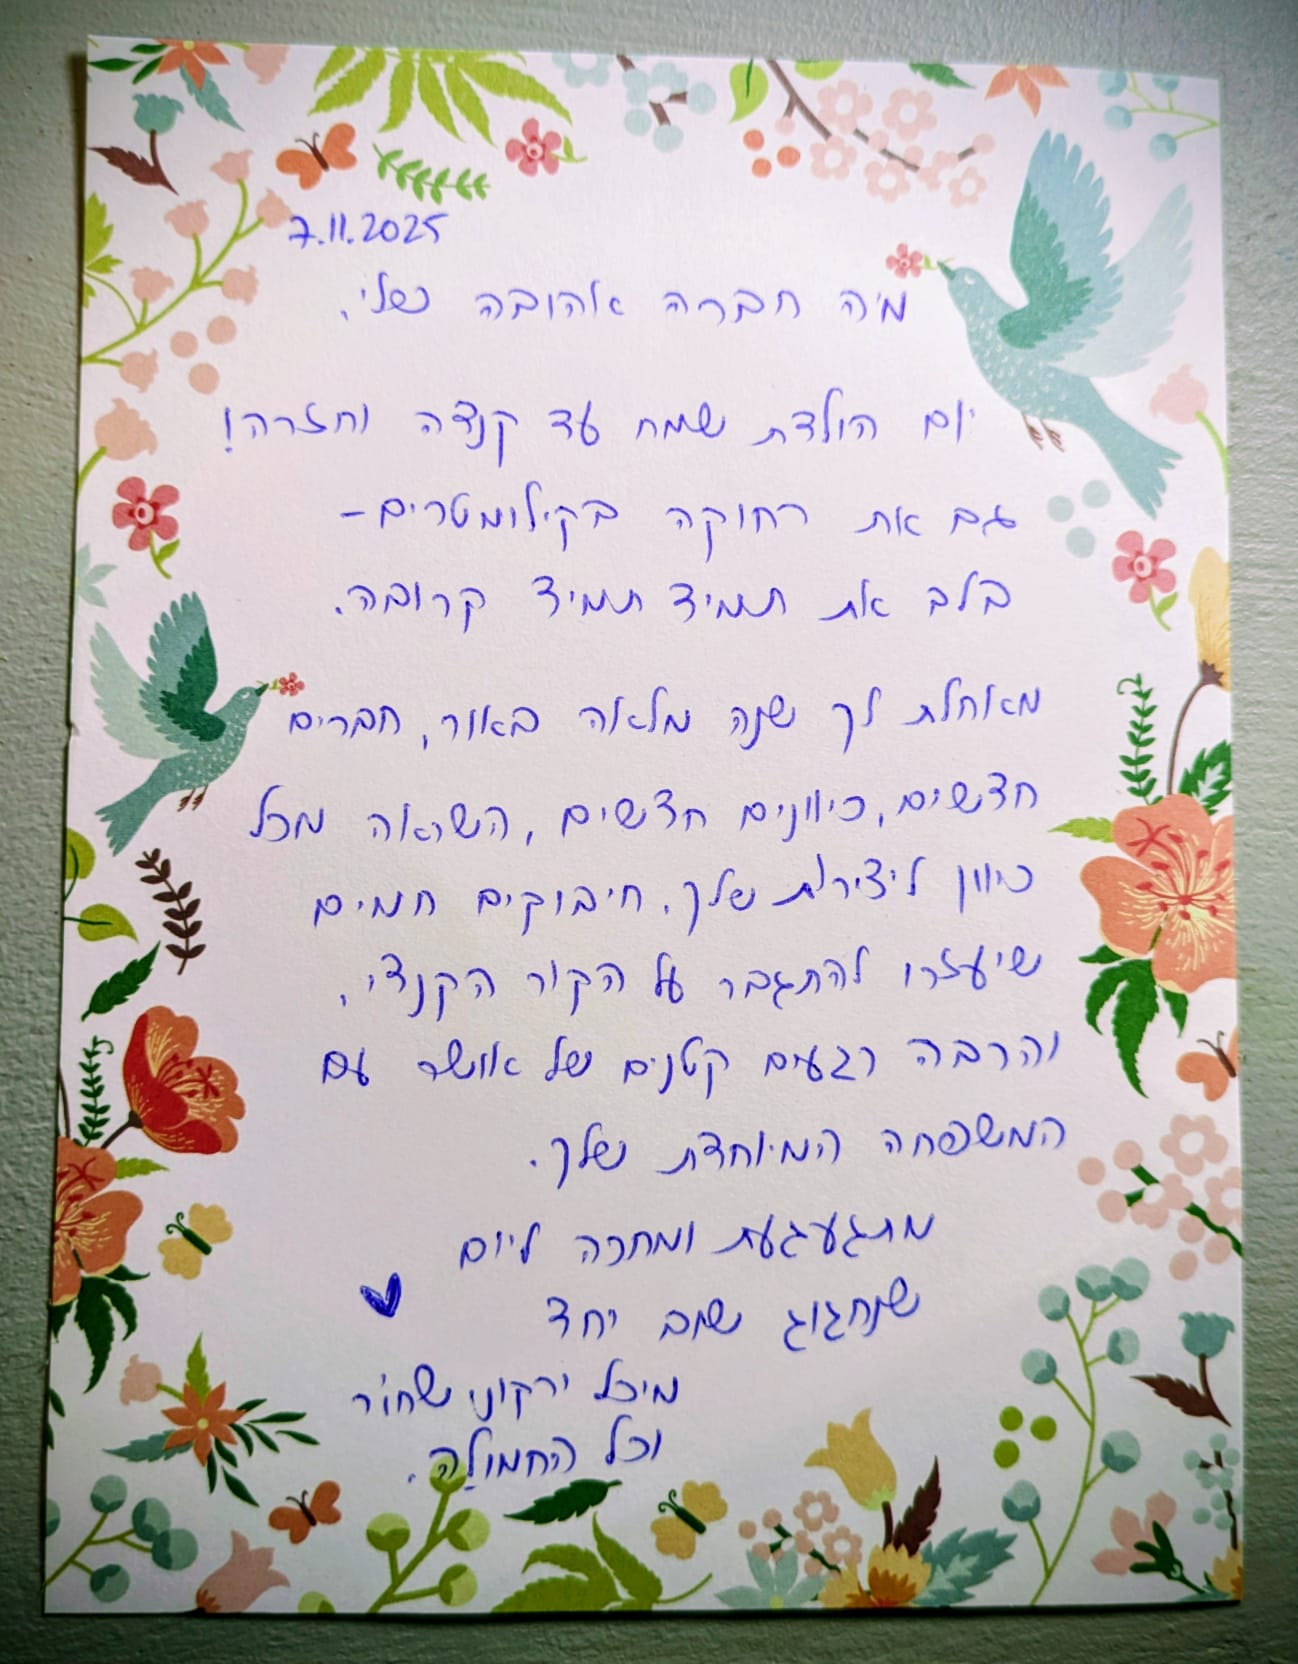 7.11.2025
מיה חברה אהובה שלי,
יום הולדת שמח עד קנדה וחזרה!
גם את רחוקה בקילומטרים-
בלב את תמיד תמיד קרובה.
מאוחלת לך שנה מלאה באור, חברים
חדשים, כיוונים חדשים, השראה מכל
כיוון ליצירות שלך. חיבוקים חמים
שיעזרו להתגבר על הקור הקנדי,
והרבה רגעים קטנים של אושר עם
המשפחה המיוחדת שלך.
מתגעגעת ומחכה ליום
שנחגוג שוב יחד
מיכל ירקוני שחור
וכל החמולה.